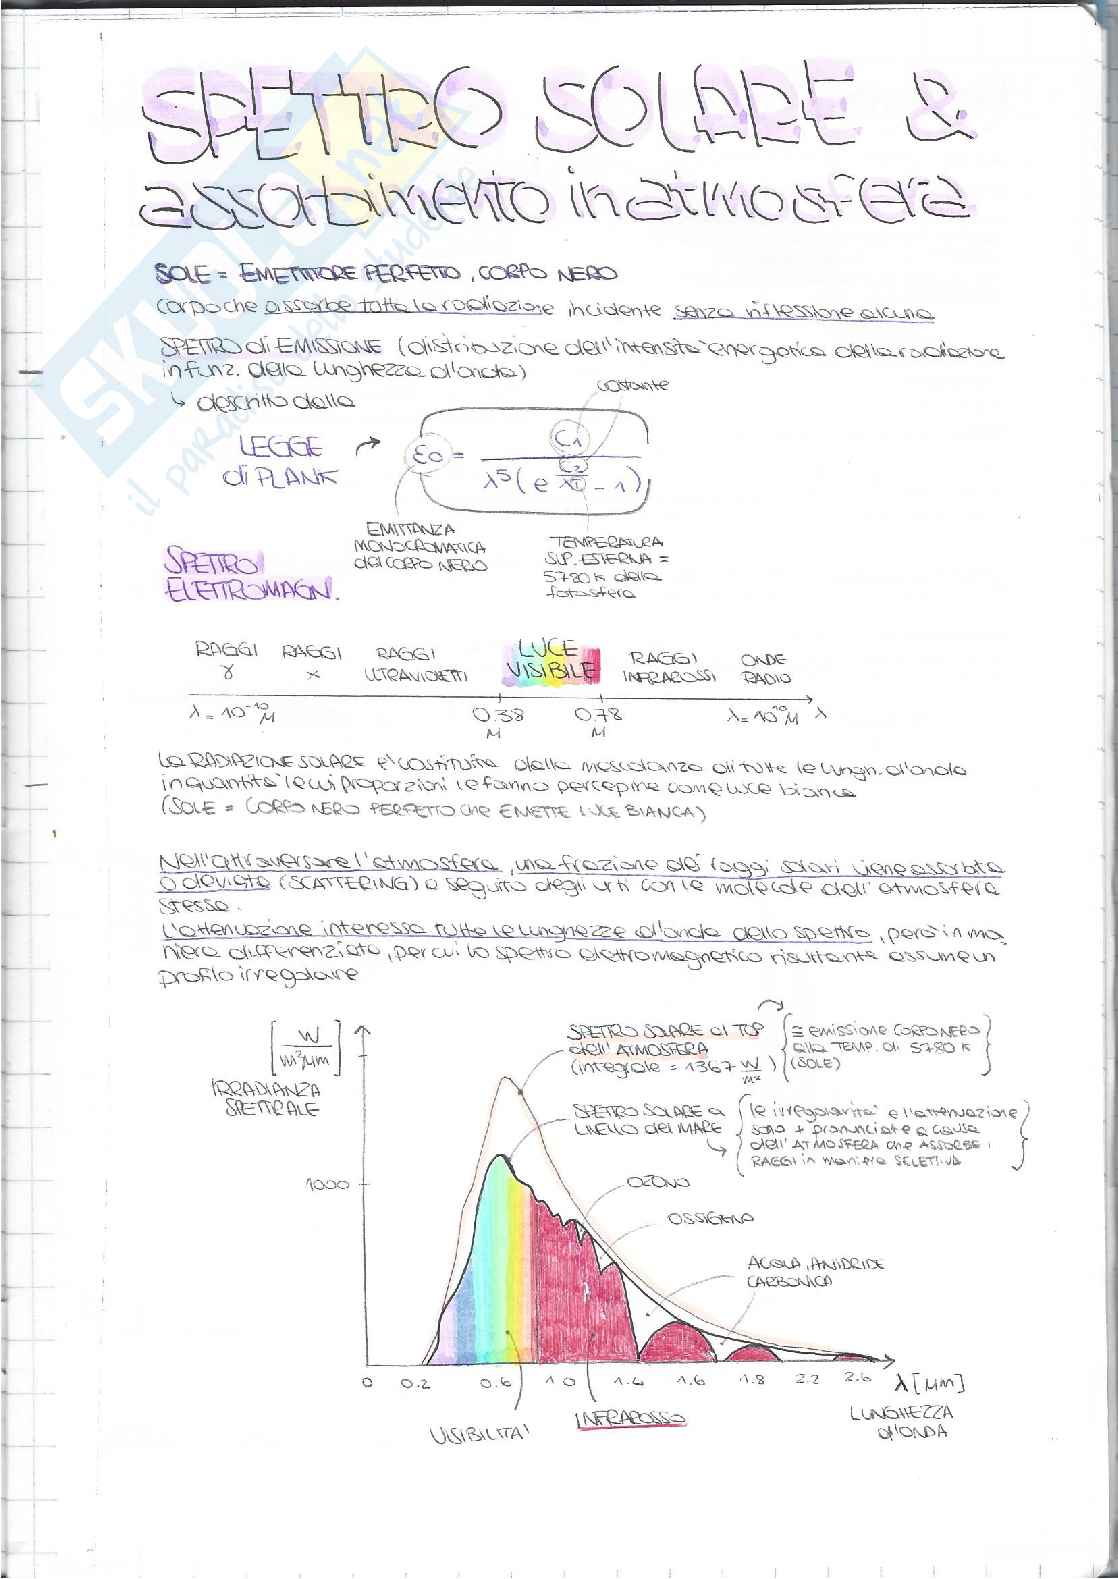 SPETTRO SOLARE &
assorbimento in atmosfera
SKUOLA.net
il paradiso dello studente
SOLE = EMETTITORE PERFETTO, CORPO NERO
corpo che assorbe tutta la radiazione incidente senza riflessione alcuna
SPETTRO di EMISSIONE (distribuzione dell'intensità energetica della radiazione
in funz. della lunghezza d'onda)
costante
↳ descritto dalla
LEGGE → ε0 = C1
di PLANK λ^5 (e^(C2/λT) - 1)
EMITTANZA
MONOCROMATICA
del CORPO NERO
TEMPERATURA
SUP. ESTERNA =
5780 K della
fotosfera
SPETTRO
ELETTROMAGN.
RAGGI γ
RAGGI x
RAGGI ULTRAVIOLETTI
LUCE VISIBILE
RAGGI INFRAROSSI
ONDE RADIO
λ = 10^-10 M
0.38 M
0.78 M
λ = 10^10 M
λ
La RADIAZIONE SOLARE è costituita dalla mescolanza di tutte le lungh. d'onda
in quantità le cui proporzioni le fanno percepire come luce bianca
(SOLE = CORPO NERO PERFETTO che EMETTE LUCE BIANCA)
Nell'attraversare l'atmosfera, una frazione dei raggi solari viene assorbita
o deviata (SCATTERING) a seguito degli urti con le molecole dell'atmosfera
stessa.
L'attenuazione interessa tutte le lunghezze d'onda dello spettro, però in ma
niera differenziata, per cui lo spettro elettromagnetico risultante assume un
profilo irregolare
[W/m²μm]
IRRADIANZA
SPETTRALE
SPETTRO SOLARE al TOP
dell'ATMOSFERA
(integrale = 1367 W/m²)
≅ emissione CORPO NERO
alla TEMP. di 5780 K
(SOLE)
SPETTRO SOLARE a
LIVELLO del MARE
le irregolarità e l'attenuazione
sono + pronunciate a causa
dell'ATMOSFERA che ASSORBE i
RAGGI in maniera SELETTIVA
1000
OZONO
OSSIGENO
ACQUA, ANIDRIDE
CARBONICA
0 0.2 0.6 1.0 1.4 1.6 1.8 2.2 2.6 λ [μm]
LUNGHEZZA
d'ONDA
VISIBILITA'
INFRAROSSO